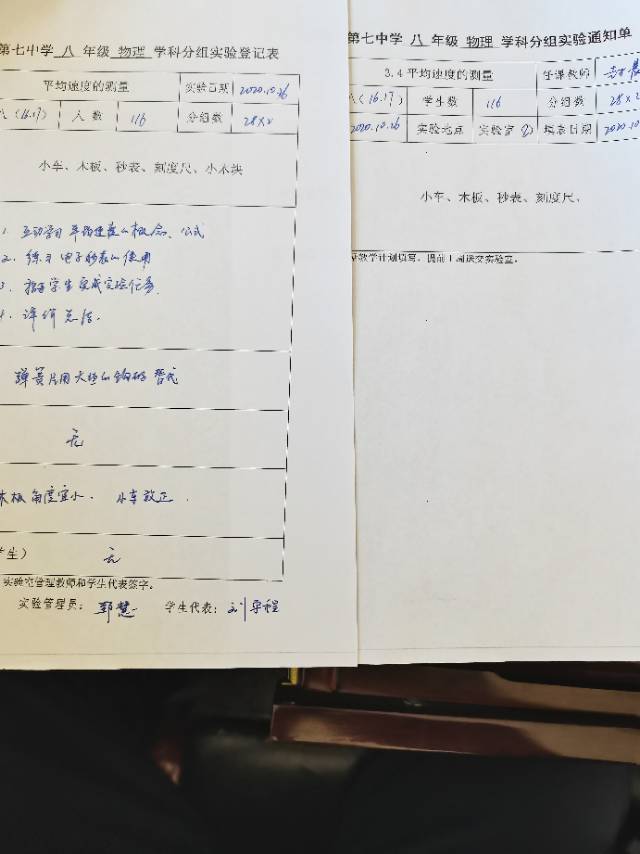 第七中学 八 年级 物理 学科分组实验登记表
平均速度的测量 实验日期 2020.10.26
八(16.17) 人数 116 分组数 28×2
小车、木板、秒表、刻度尺、小木块
1. 互动学习 平均速度的概念、公式
2. 练习 电子秒表的使用
3. 指导学生完成实验任务
4. 评价总结。
弹簧片用大的钩码替代
无
木板角度宜小. 小车放正.
学生) 无
实验室管理教师和学生代表签字。
实验管理员: 学生代表:
第七中学 八 年级 物理 学科分组实验通知单
3.4 平均速度的测量 任课教师
八(16.17) 学生数 116 分组数 28×2
2020.10.26 实验地点 实验室(2) 填表日期 2020.10
小车、木板、秒表、刻度尺、
教学计划填写,提前1周送交实验室。